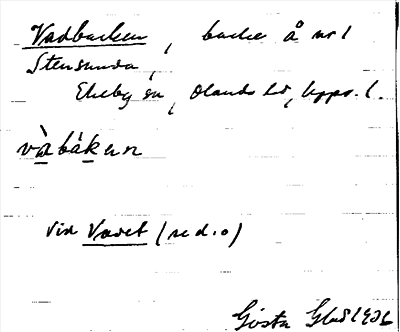 Vadbacken, backe å nr 1
Stensunda,
Ekeby sn, Olands hd, Upps. l.
và̱bák̠en
vid Vadet (se d.o)
Gösta Glad 1936